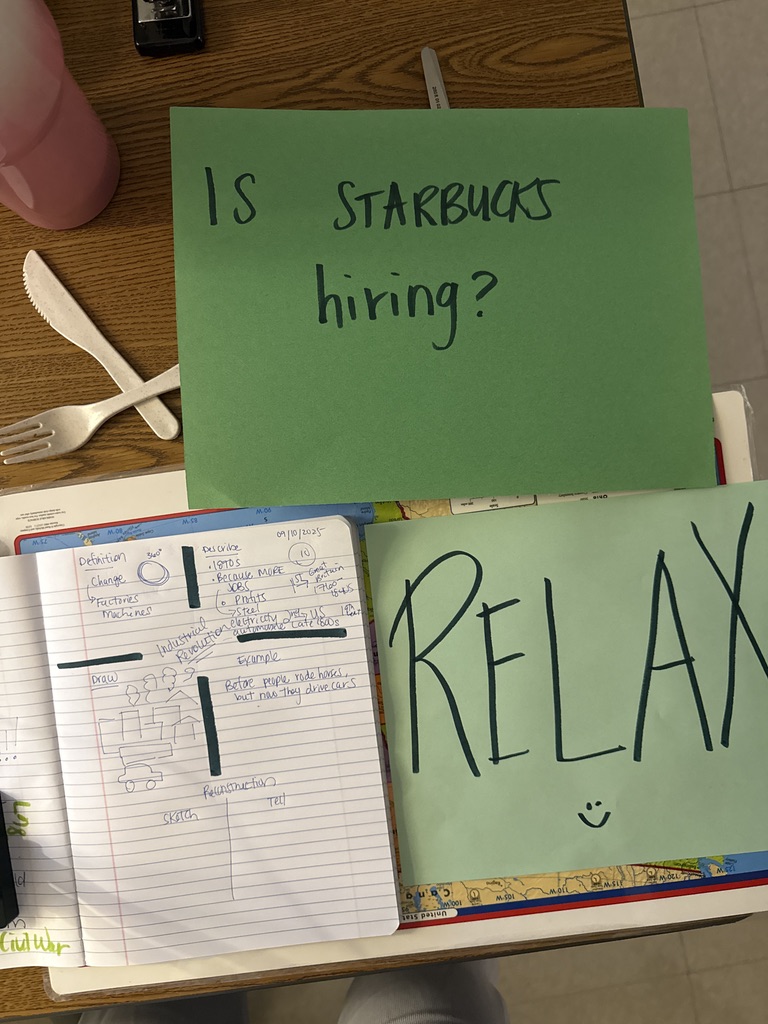 IS STARBUCKS
hiring?
RELAX
09/10/2025
Definition
360°
Change
Factories
Machines
Describe
10
1870s
Because MORE
JOBS
Profits
Steel
electricity
automobile
1st Great Britain
1760-
1840s
2nd US
Late 1800s
Industrial
Revolution
Draw
Example
Before people rode horses,
but now they drive cars
Reconstruction
Sketch
Tell
Civil War
Canada
United Stat